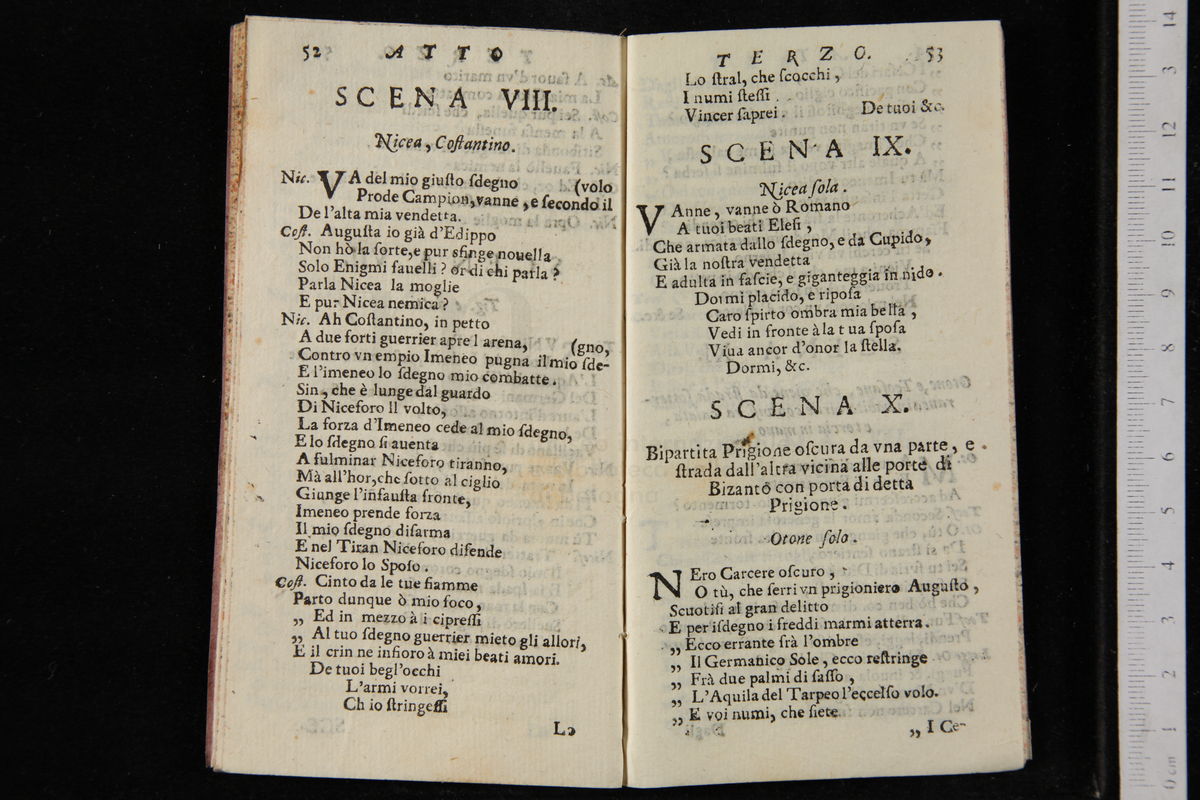 52 ATTO
SCENA VIII.
Nicea, Coſtantino.
Nic. VA del mio giuſto ſdegno (volo
Prode Campion, vanne, e ſecondo il
De l'alta mia vendetta.
Coſt. Auguſta io già d'Edippo
Non hò la ſorte, e pur sfinge nouella
Solo Enigmi fauelli? or di chi parla?
Parla Nicea la moglie
E pur Nicea nemica?
Nic. Ah Coſtantino, in petto
A due forti guerrier apre l arena, (gno,
Contro vn empio Imeneo pugna il mio ſde-
E l'imeneo lo ſdegno mio combatte.
Sin, che è lunge dal guardo
Di Niceforo il volto,
La forza d'Imeneo cede al mio ſdegno,
E lo ſdegno ſi auenta
A fulminar Niceforo tiranno,
Mà all'hor, che ſotto al ciglio
Giunge l'infauſta fronte,
Imeneo prende forza
Il mio ſdegno diſarma
E nel Tiran Niceforo difende
Niceforo lo Spoſo.
Coſt. Cinto da le tue fiamme
Parto dunque ò mio foco,
„ Ed in mezzo à i cipreſſi
„ Al tuo ſdegno guerrier mieto gli allori,
E il crin ne infioro à miei beati amori.
De tuoi begl'occhi
L'armi vorrei,
Ch io ſtringeſſi
Lo
TERZO. 53
Lo ſtral, che ſcocchi,
I numi ſteſſi.
Vincer ſaprei. De tuoi &c.
SCENA IX.
Nicea ſola.
VAnne, vanne ò Romano
A tuoi beati Eleſi,
Che armata dallo ſdegno, e da Cupido,
Già la noſtra vendetta
E adulta in faſcie, e giganteggia in nido.
Dormi placido, e ripoſa
Caro ſpirto ombra mia bella,
Vedi in fronte à la tua ſpoſa
Viua ancor d'onor la ſtella.
Dormi, &c.
SCENA X.
Bipartita Prigione oſcura da vna parte, e
ſtrada dall'altra vicina alle porte di
Bizanto con porta di detta
Prigione.
Otone ſolo.
NEro Carcere oſcuro,
O tù, che ſerri vn prigioniero Auguſto,
Scuotiſi al gran delitto
E per iſdegno i freddi marmi atterra.
„ Ecco errante frà l'ombre
„ Il Germanico Sole, ecco reſtringe
„ Frà due palmi di ſaſſo,
„ L'Aquila del Tarpeo l'eccelſo volo.
„ E voi numi, che ſiete
„ I Ce-